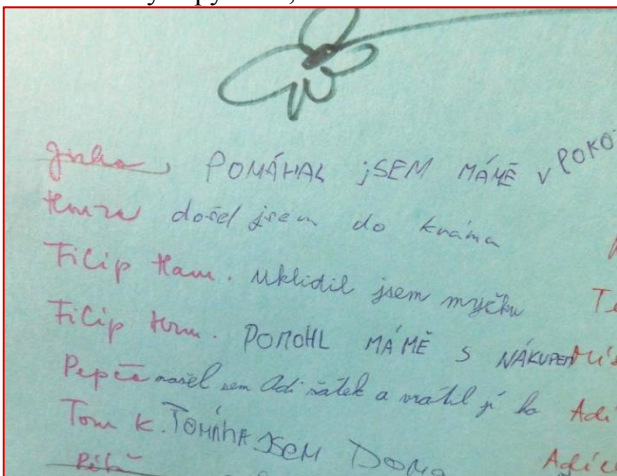 Jirka POMÁHAL jSEM MÁMĚ V POKO
Honza došel jsem do krámu
Filip Ham. Uklidil jsem myčku
Filip Hom. POMOHL MÁMĚ S NÁKUPEM
Pepča našel sem Adi šátek a vrátil jí ho Adi
Tom K. POMÁHA JSEM DOMA